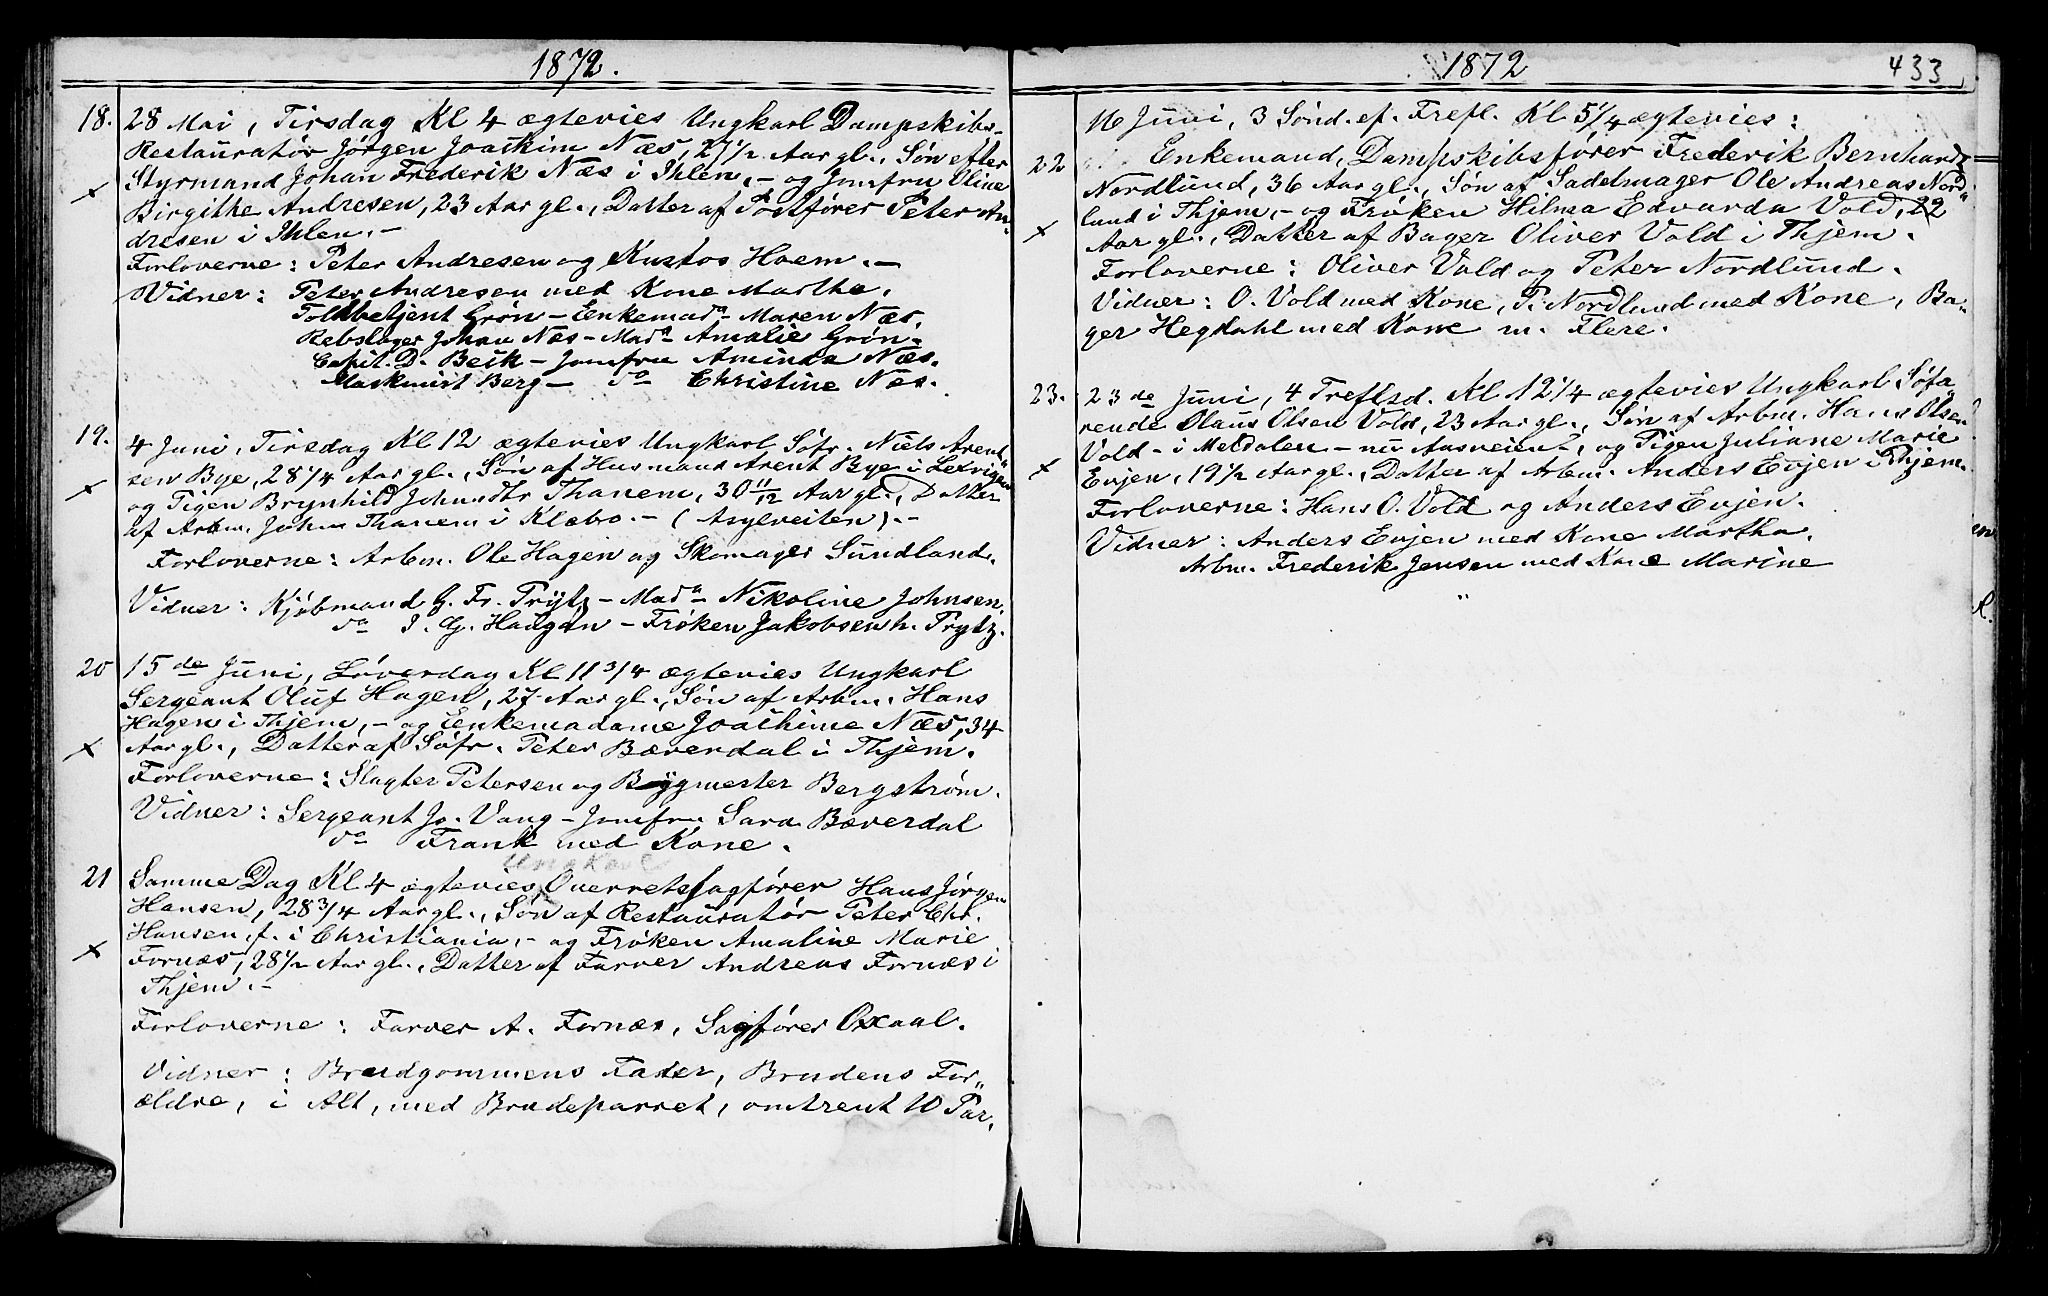 1872.
18. 28 Mai, Tirsdag Kl 4 ægtevies Ungkarl Dampskibs-
Restauratør Jørgen Joachim Næs, 27 1/2 Aar gl., Søn efter
Styrmand Johan Frederik Næs i Ihlen, - og Jomfru Oline
Birgithe Andresen, 23 Aar gl., Datter af Postfører Peter An-
dresen i Ihlen. -
Forloverne: Peter Andresen og Kustos Hoem. -
Vidner: Peter Andresen med Kone Marthe.
Toldbetjent Grøn - Enkemada Maren Næs.
Rebslager Johan Næs - Mada Amalie Grøn.
Capit. D. Beck - Jomfru Aminda Næs.
Maskmist Berg - do Christine Næs.
19. 4 Juni, Tirsdag Kl 12 ægtevies Ungkarl Søfr. Niels Arent-
sen Bye, 28 1/4 Aar gl., Søn af Husmand Arent Bye i Lexvigen
og Pigen Brynhild Johnsdtr Thanem, 30 11/12 Aar gl., Datter
af Arbm. John Thanem i Klæbo. - (Asylveiten). -
Forloverne: Arbm. Ole Hagen og Skomager Sundland.
Vidner: Kjøbmand G. Fr. Trytz - Mada Nikoline Johnsen.
do J. G. Haugan - Frøken Jakobsen h. Prytz.
20 15de Juni, Løverdag Kl 11 3/4 ægtevies Ungkarl
Sergeant Oluf Hagen, 27 Aar gl., Søn af Arbm. Hans
Hagen i Thjem, - og Enkemadame Joachime Næs, 34
Aar gl., Datter af Søfr. Peter Bæverdal i Thjem.
Forloverne: Slagter Petersen og Bygmester Bergstrøm.
Vidner: Sergeant Jo. Vang - Jomfru Sara Bæverdal
do Frank med Kone.
Ungkarl
21 Samme Dag Kl 4 ægtevies Overretssagfører Hans Jørgen
Hansen, 28 3/4 Aar gl., Søn af Restauratør Peter Chr.
Hansen, f. i Christiania, - og Frøken Amaline Marie
Fornæs, 28 1/2 Aar gl., Datter af Farver Andreas Fornæs i
Thjem. -
Forloverne: Farver A. Fornæs, Sagfører Oxaal.
Vidner: Brudgommens Fader, Brudens For-
ældre, i Alt, med Brudeparret, omtrent 10 Par.
1872
433
16 Juni, 3 Sønd. ef. Trefl. Kl 5 1/4 ægtevies:
22 Enkemand, Dampskibsfører Frederik Bernhard
Nordlund, 36 Aar gl., Søn af Sadelmager Ole Andreas Nord-
lund i Thjem, - og Frøken Hilma Edvarda Vold, 22
Aar gl., Datter af Bager Oliver Vold i Thjem.
Forloverne: Oliver Vold og Peter Nordlund.
Vidner: O. Vold med Kone, P. Nordlund med Kone, Ba-
ger Hegdahl med Kone m. Flere.
23. 23de Juni, 4 Treflsd. Kl 12 1/4 ægtevies Ungkarl Søfa-
rende Olaus Olsen Vold, 23 Aar gl., Søn af Arbm. Hans Olsen
Vold - i Meldalen - nu Aasveien -, og Pigen Juliane Marie
Evjen, 19 1/2 Aar gl., Datter af Arbm. Anders Evjen i Thjem.
Forloverne: Hans O. Vold og Anders Evjen.
Vidner: Anders Evjen med Kone Martha.
Arbm. Frederik Jensen med Kone Marine